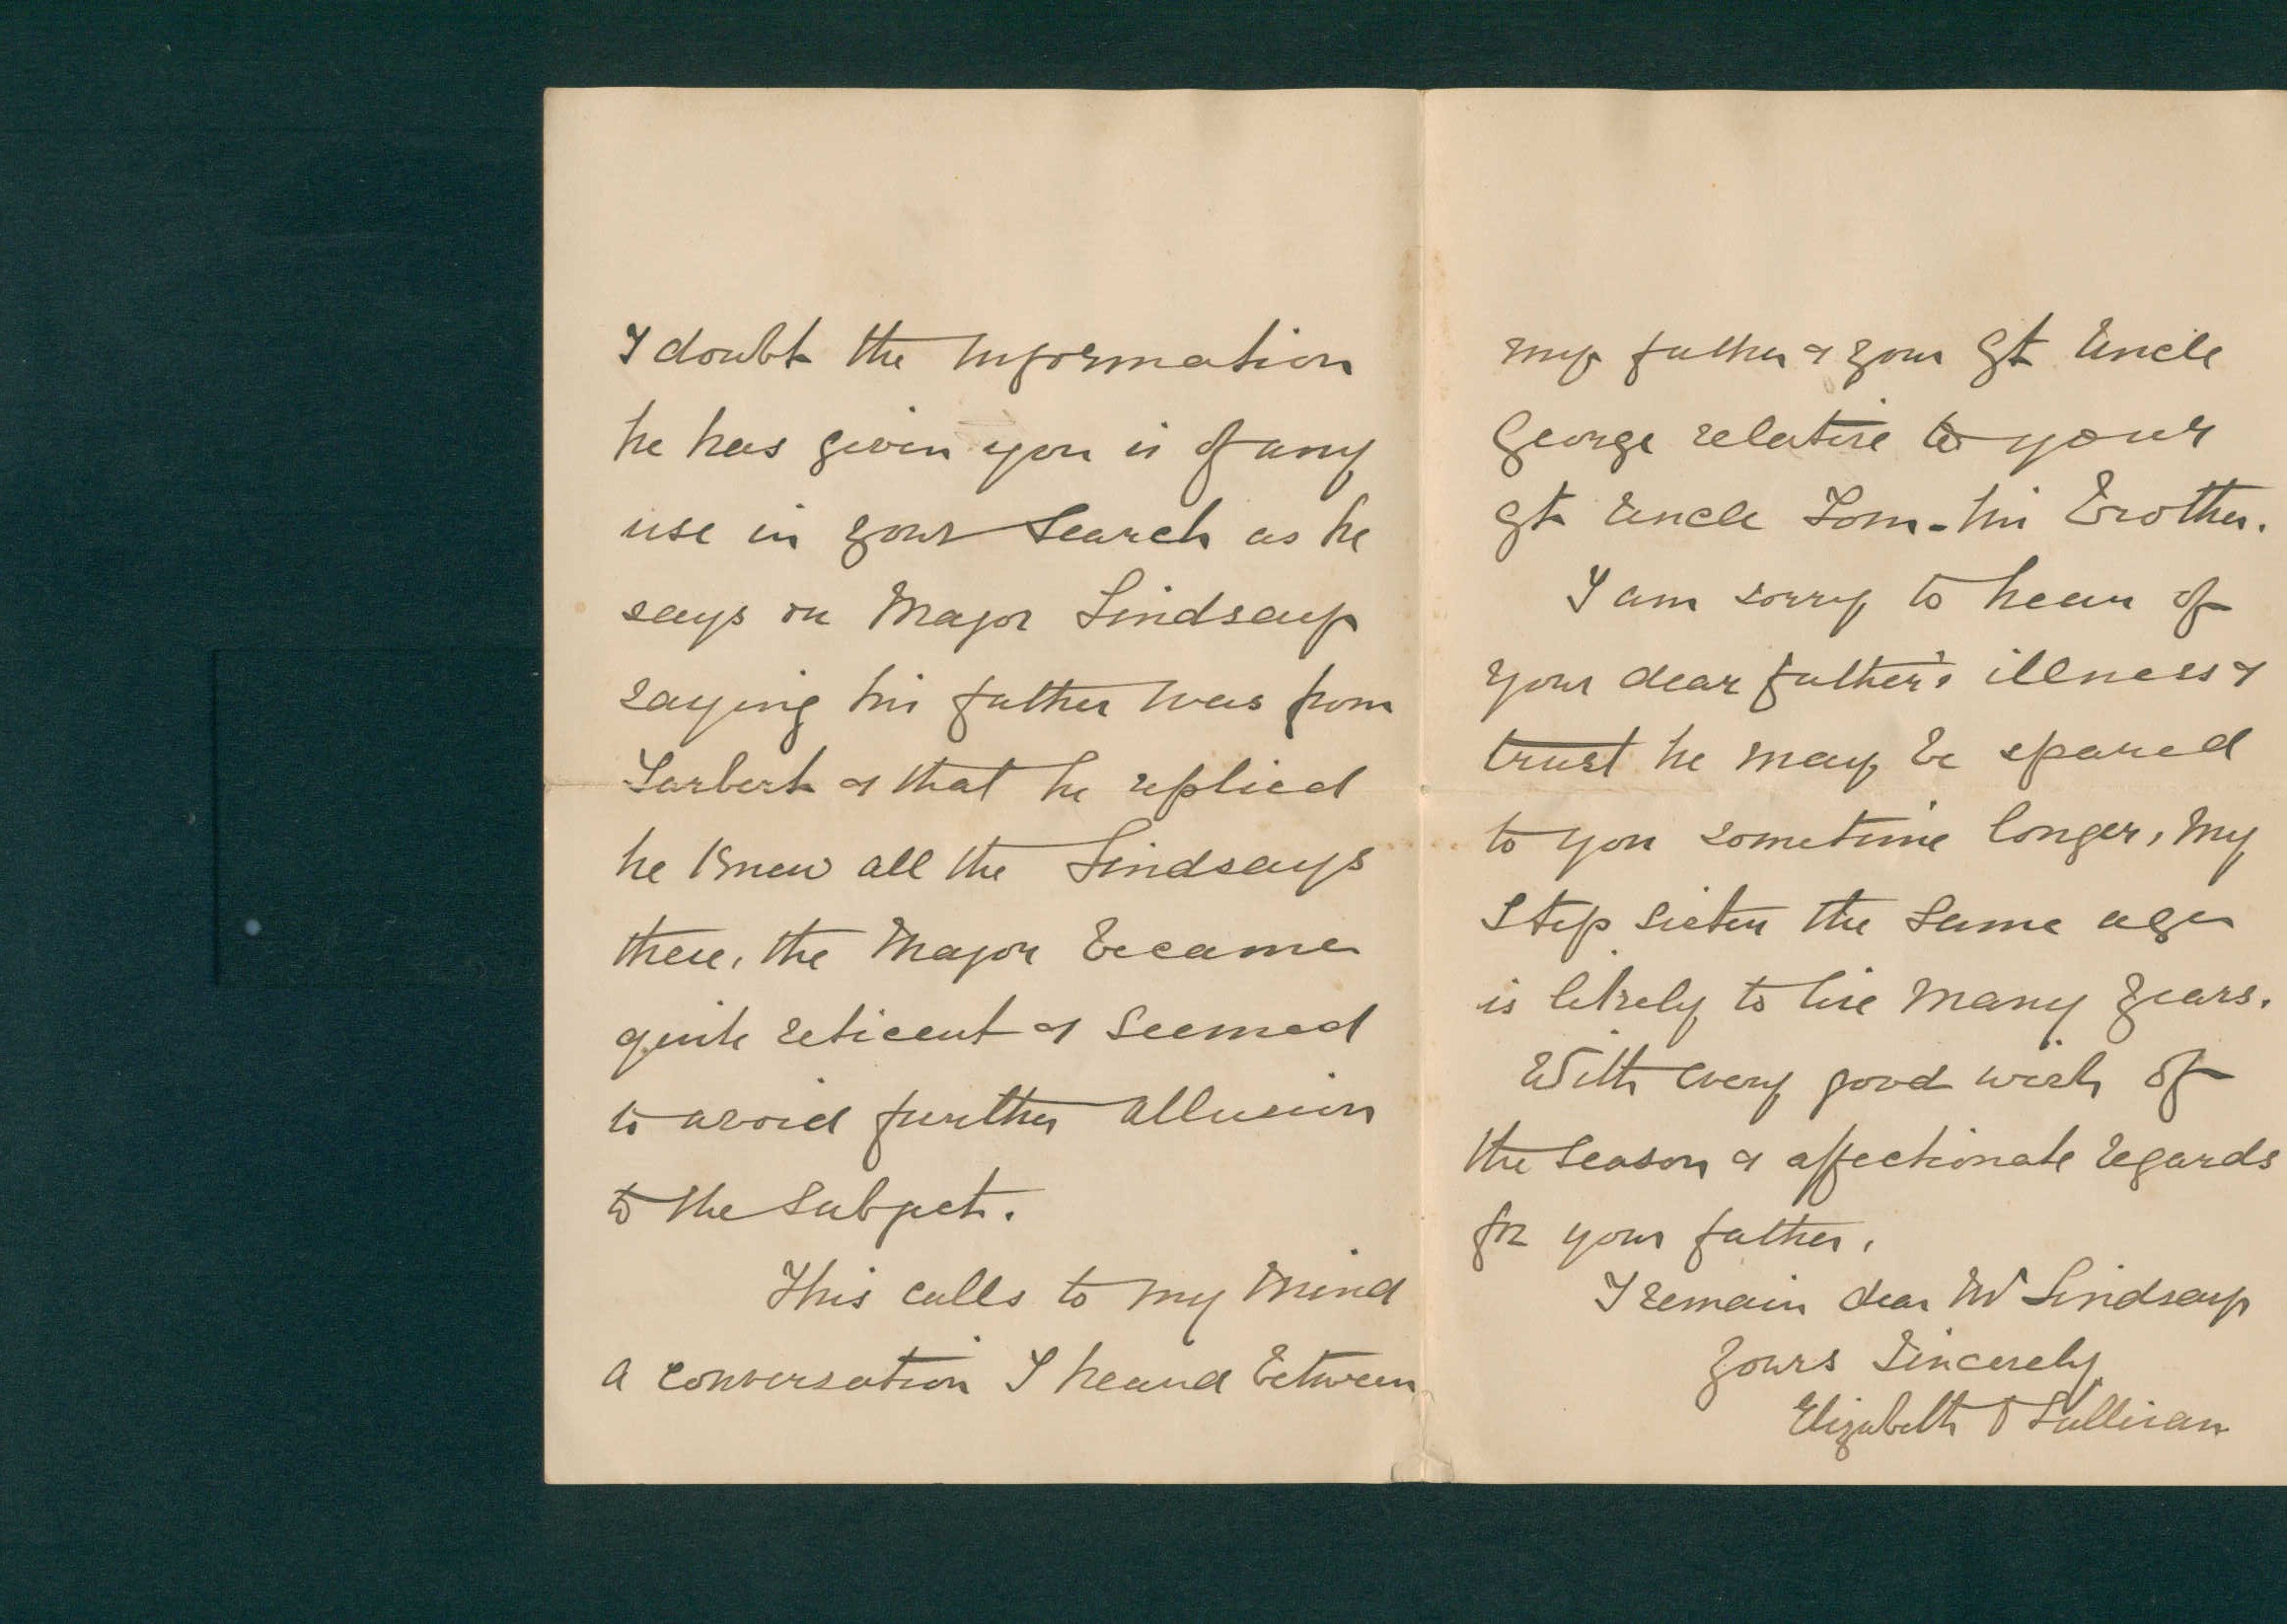 I doubt the information
he has given you is of any
use in your search as he
says on Major Lindsay
saying his father was from
Tarbert & that he replied
he knew all the Lindsays
there, the Major became
quite reticent & seemed
to avoid further allusion
to the subject.
This calls to my mind
a conversation I heard between
my father & your Gt Uncle
George relative to your
Gt Uncle Tom - his Brother.
I am sorry to hear of
your dear father's illness &
trust he may be spared
to you sometime longer, my
step sister the same age
is likely to live many years.
With every good wish of
the season & affectionate regards
for your father,
I remain dear Mr Lindsay
Yours Sincerely
Elizabeth O Sullivan